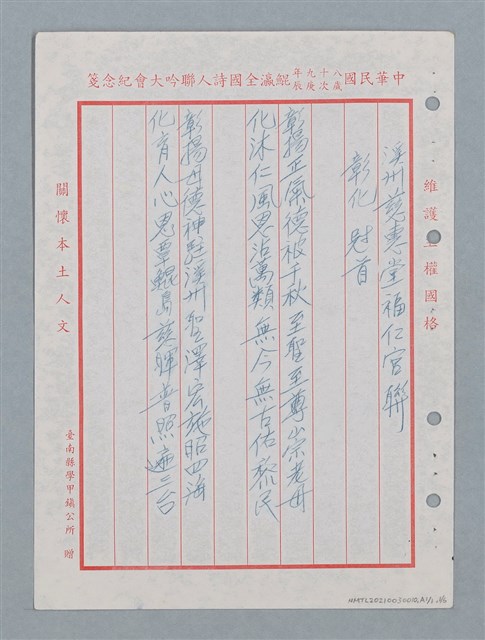 中華民國八十九年歲次庚辰鯤瀛全國詩人聯吟大會紀念箋
維護主權國格
溪州慈惠堂福仁宮聯
彰化 冠首
彰揚正氣德被千秋至聖至尊崇老母
化沐仁風恩沾萬類無今無古佑黎民
彰揚母德神溪州聖澤宏施昭四海
化育人心恩覃鯤島慈暉普照遍三台
關懷本土人文
臺南縣學甲鎮公所 贈